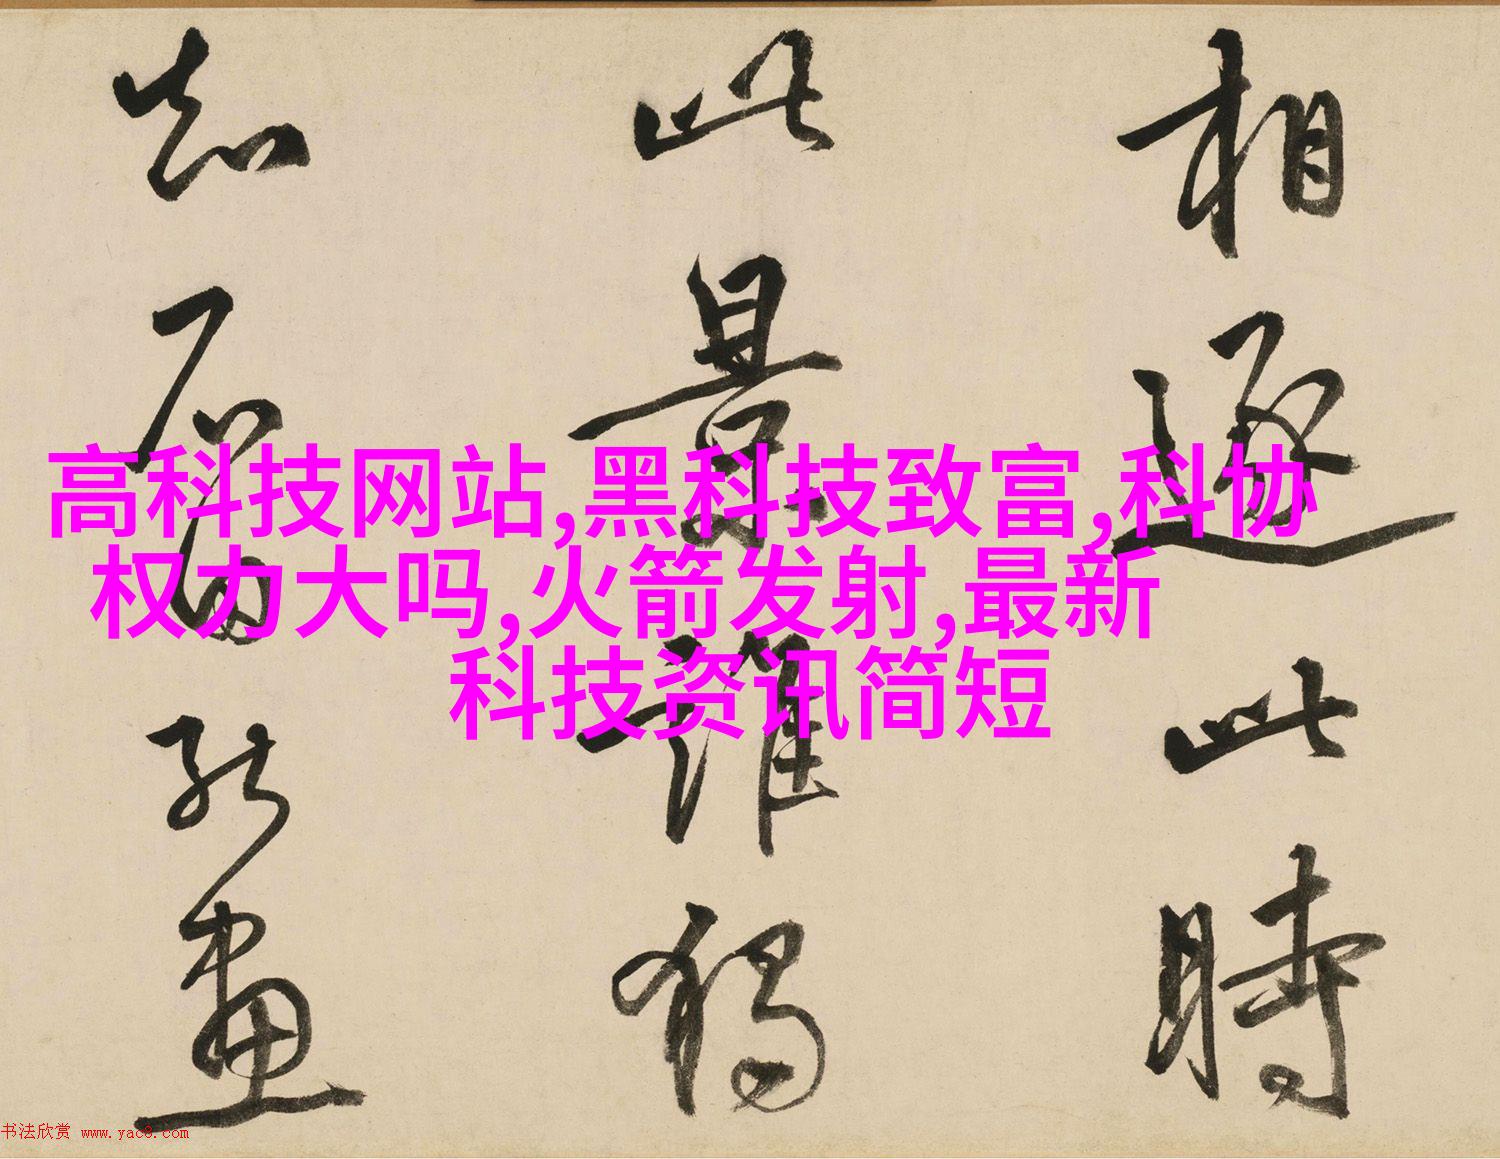 相逐此時
此景誰獨
知石君能畫
高科技网站,黑科技致富,科协
权力大吗,火箭发射,最新
科技资讯简短
书法欣赏 www.yac8.com